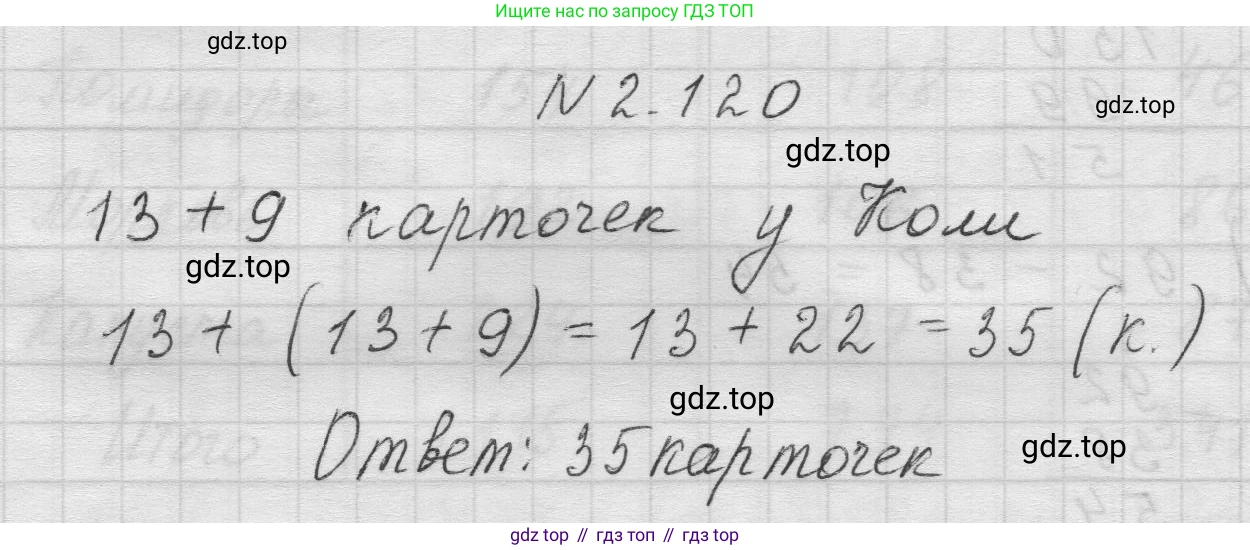 Ищите нас по запросу ГДЗ ТОП
gdz.top
N 2.120
gdz.top
gdz.top
13 + 9 карточек у Коли
gdz.top
13 + (13 + 9) = 13 + 22 = 35 (к.)
gdz.top
Ответ: 35 карточек
gdz.top
gdz.top // гдз топ // gdz top